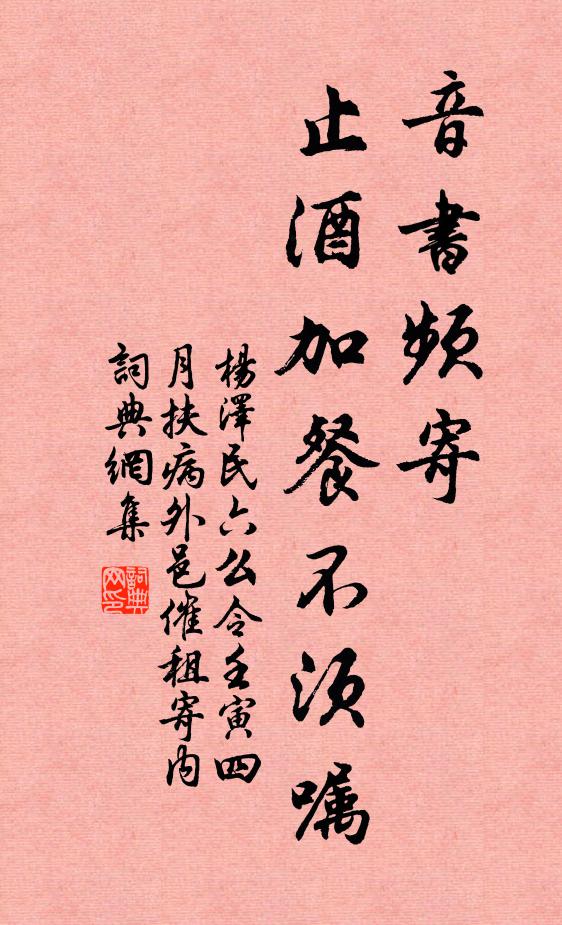 音書頻寄
止酒加餐不須嘱
楊澤民六么令壬寅四
月扶病外邑催租寄内
詞典網集
詞典网印